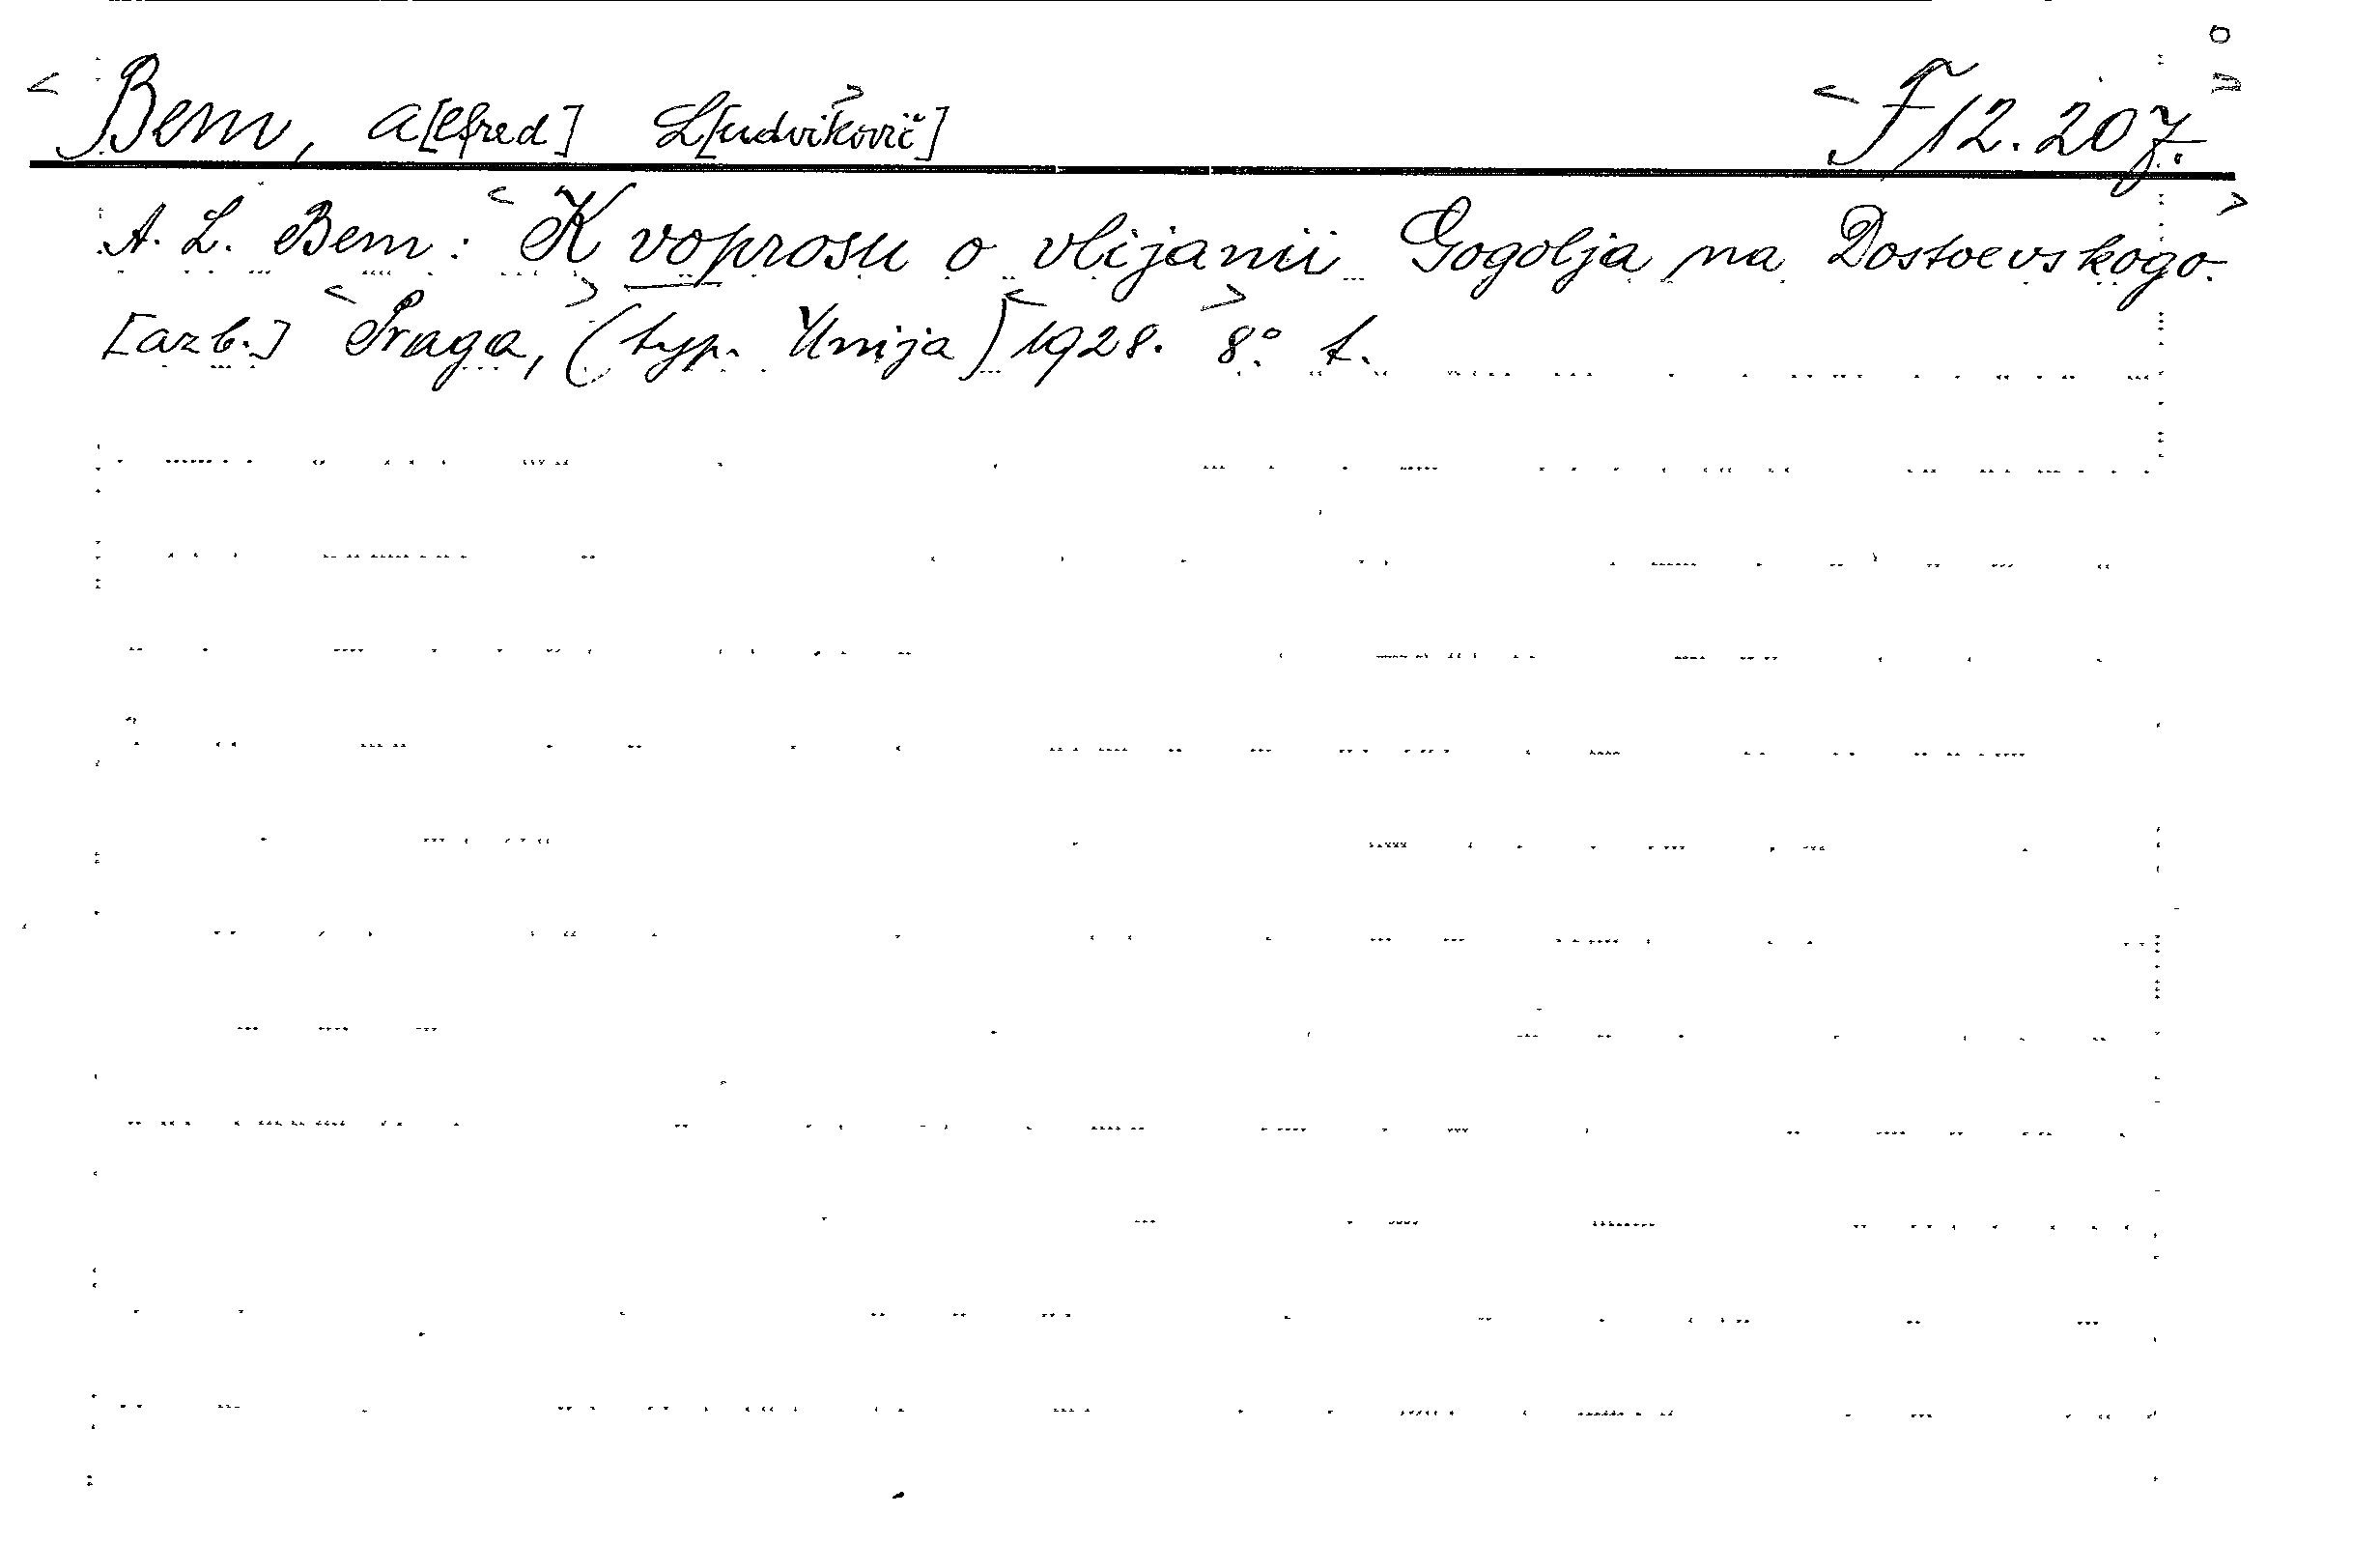 < Bem, A[lfred] L[udvikovič] > < F 12.207. >
A. L. Bem: < K voprosu o vlijanii Gogolja na Dostoevskogo. >
[azb.] < Praga, > (typ. Unija) < 1928. > 8° t.